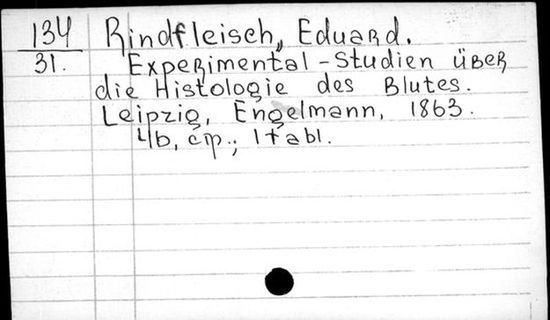 134 Rindfleisch, Eduard.
31. Experimental-Studien über
die Histologie des Blutes.
Leipzig, Engelmann, 1863.
46, cтp.; 1 tabl.